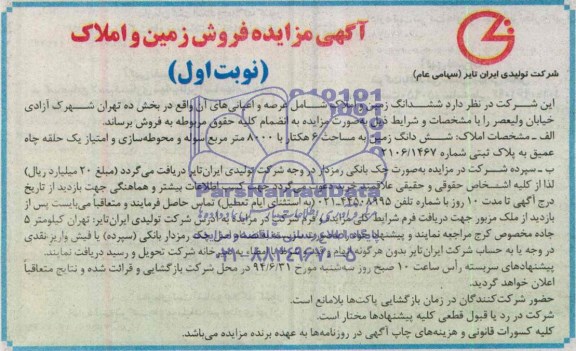 آگهی مزایده فروش زمین و املاک
(نوبت اول)
شرکت تولیدی ایران تایر (سهامی عام)
این شرکت در نظر دارد ششدانگ زمین و املاک شامل عرصه و اعیانی‌های آن واقع در بخش ده تهران شهرک آزادی
خیابان ولیعصر را با مشخصات و شرایط ذیل به‌صورت مزایده به انضمام کلیه حقوق مربوطه به فروش برساند.
الف ـ مشخصات املاک: شش دانگ زمین به مساحت ۶ هکتار با ۸۰۰۰ متر مربع سوله و محوطه‌سازی و امتیاز یک حلقه چاه
عمیق به پلاک ثبتی شماره ۲۱۰۶/۱۴۶۷
ب ـ سپرده شرکت در مزایده به‌صورت چک بانکی رمزدار در وجه شرکت تولیدی ایران‌تایر دریافت می‌گردد (مبلغ ۲۰ میلیارد ریال)
لذا از کلیه اشخاص حقوقی و حقیقی اطلاعات بیشتر و هماهنگی جهت بازدید از تاریخ
درج آگهی تا مدت ۱۰ روز با شماره تلفن (به استثنای ایام تعطیل) تماس حاصل فرمایند و متعاقباً می‌بایست پس از
بازدید از ملک مزبور جهت دریافت فرم شرایط شرکت در مزایده به شرکت تولیدی ایران‌تایر: تهران کیلومتر ۵
جاده مخصوص کرج مراجعه نمایند و چک رمزدار بانکی (سپرده) یا فیش واریز نقدی
در وجه یا به حساب شرکت ایران‌تایر بدون هرگونه شرکت تحویل و رسید دریافت نمایند.
پیشنهادهای سربسته رأس ساعت ۱۰ صبح روز سه‌شنبه مورخ ۹۴/۶/۳۱ در محل شرکت بازگشایی و قرائت شده و نتایج متعاقباً
اعلان خواهد گردید.
حضور شرکت‌کنندگان در زمان بازگشایی پاکت‌ها بلامانع است.
شرکت در رد یا قبول قطعی کلیه پیشنهادها مختار است.
کلیه کسورات قانونی و هزینه‌های چاپ آگهی در روزنامه‌ها به عهده برنده مزایده می‌باشد.
ParsNamadData
۰۲۱-۸۸۳۴۹۶۷۰-۵